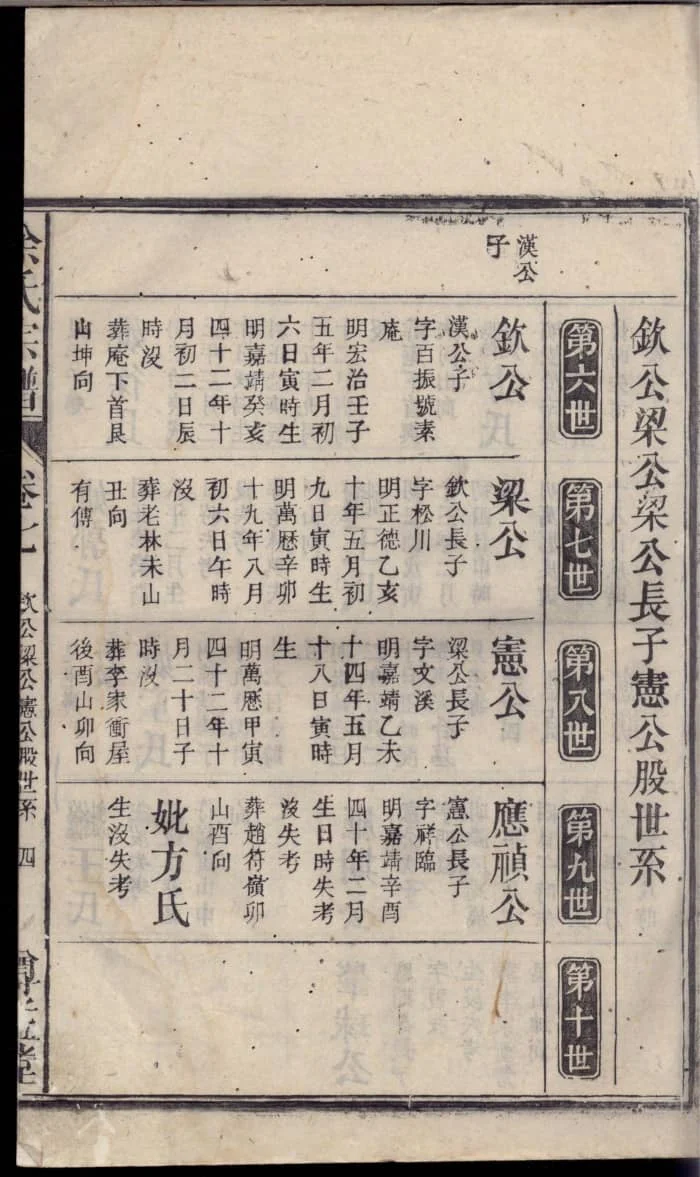 欽公梁公梁公長子憲公股世系
第六世
第七世
第八世
第九世
第十世
漢公
子
欽公
漢公子
字百振號素
庵
明宏治壬子
五年二月初
六日寅時生
明嘉靖癸亥
四十二年十
月初二日辰
時沒
葬庵下首艮
山坤向
梁公
欽公長子
字松川
明正德乙亥
十年五月初
九日寅時生
明萬曆辛卯
十九年八月
初六日午時
沒
葬老林未山
丑向
有傳
憲公
梁公長子
字文溪
明嘉靖乙未
十四年五月
十八日寅時
生
明萬曆甲寅
四十二年十
月二十日子
時沒
葬李家衝屋
後酉山卯向
應禎公
憲公長子
字祥臨
明嘉靖辛酉
四十年二月
生日時失考
沒失考
葬趙符嶺卯
山酉向
妣方氏
生沒失考
氏宗譜
卷之
欽公梁公憲公股世系
四